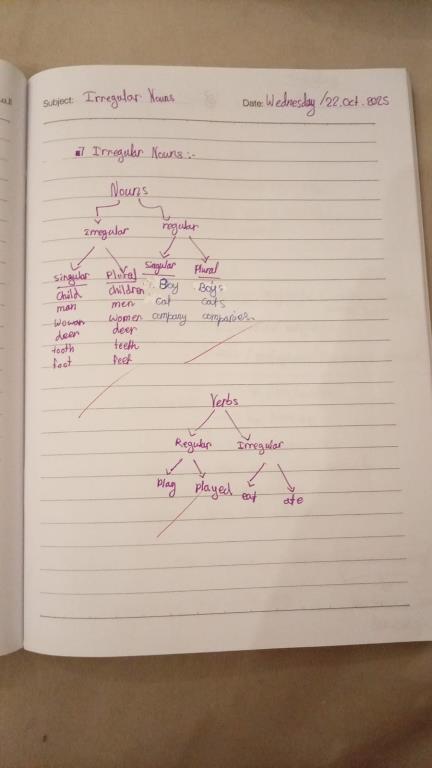 Subject: Irregular Nouns Date: Wednesday /22.Oct.2025
Irregular Nouns :-
Nouns
irregular regular
Singular Plural Singular Plural
Child children Boy Boys
man men cat cats
woman women company companies
deer deer
tooth teeth
foot feet
Verbs
Regular Irregular
play played eat ate